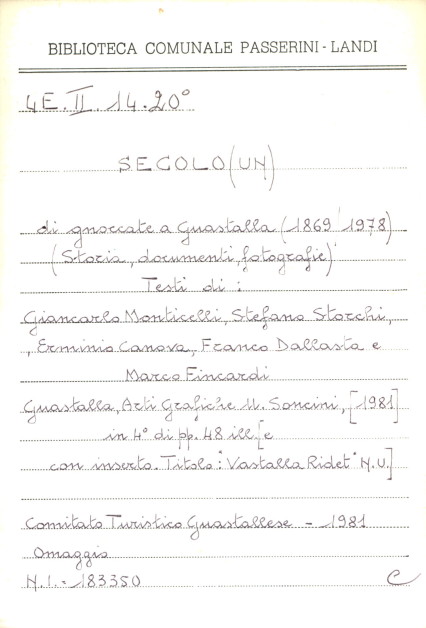 BIBLIOTECA COMUNALE PASSERINI - LANDI
4E. II. 14.20°
SECOLO (UN)
di gnoccate a Guastalla (1869 1978)
(Storia, documenti, fotografie)
Testi di :
Giancarlo Monticelli, Stefano Storchi,
, Erminio Canova, Franco Dallasta e
Marco Fincardi
Guastalla, Arti Grafiche U. Soncini, [1981]
in 4° di pp. 48 ill. [e
con inserto. Titolo: "Vastalla Ridet" N.U.]
Comitato Turistico Guastallese - 1981
Omaggio
N.I. = 183350 C